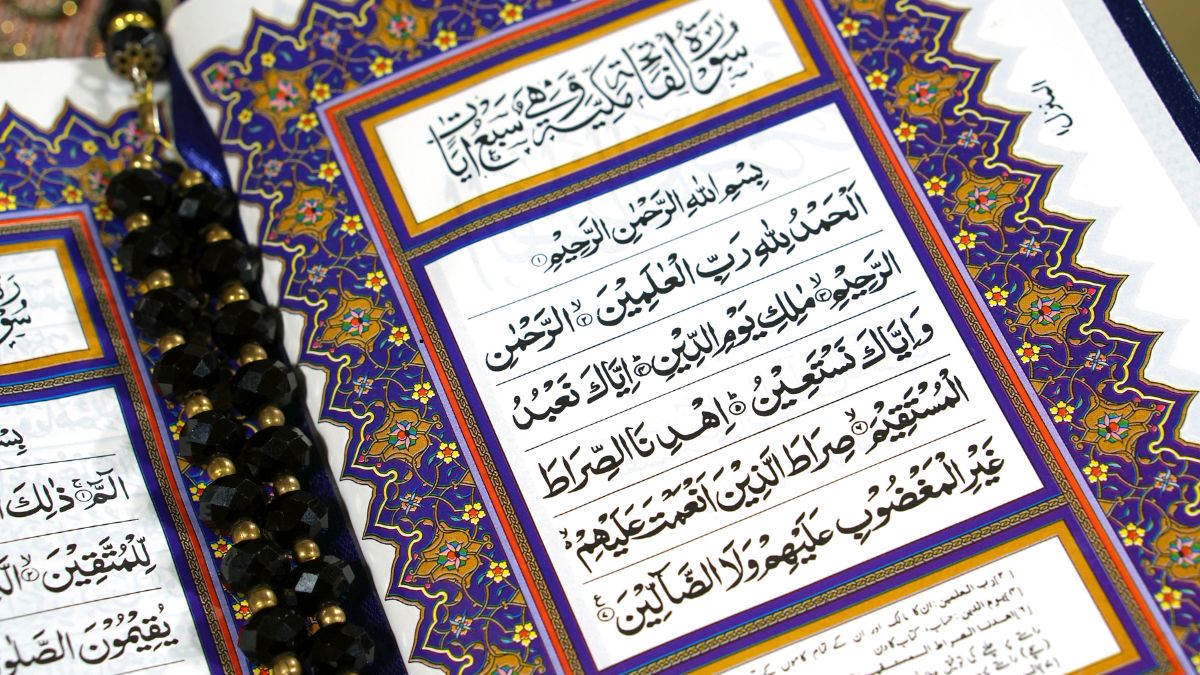 سورة الفاتحة مكية وهي سبع ايات
بِسْمِ اللهِ الرَّحْمٰنِ الرَّحِيْمِ ۝١
اَلْحَمْدُ لِلّٰهِ رَبِّ الْعٰلَمِيْنَ ۙ‏۝٢ الرَّحْمٰنِ
الرَّحِيْمِ ۙ‏۝٣ مٰلِكِ يَوْمِ الدِّيْنِ ؕ‏۝٤ اِيَّاكَ نَعْبُدُ
وَاِيَّاكَ نَسْتَعِيْنُ ؕ‏۝٥ اِهْدِنَا الصِّرَاطَ
الْمُسْتَقِيْمَ ۙ‏۝٦ صِرَاطَ الَّذِيْنَ اَنْعَمْتَ عَلَيْهِمْ ۙ
غَيْرِ الْمَغْضُوْبِ عَلَيْهِمْ وَلَا الضَّآلِّيْنَ ۝٧ ع
المنزل
بِسْ
الٓمّٓ ۚ‏۝١ ذٰلِكَ
لِّلْمُتَّقِيْنَ ۙ‏۝٢
يُقِيْمُوْنَ الصَّلٰو